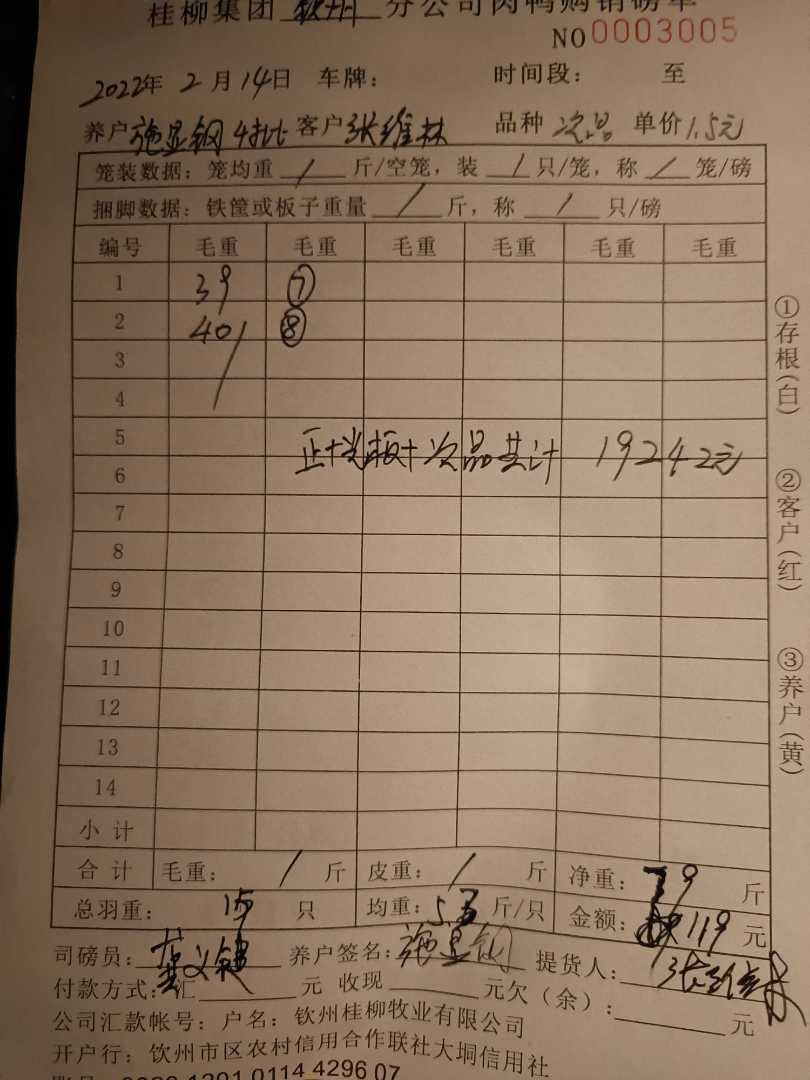 桂柳集团 钦州 分公司肉鸭购销磅单
NO 0003005
2022年 2月 14日 车牌: 时间段: 至
养户 施显钢 4批 客户 张维林 品种 次品 单价 1.5元
笼装数据:笼均重 / 斤/空笼,装 / 只/笼,称 / 笼/磅
捆脚数据:铁筐或板子重量 / 斤,称 / 只/磅
编号 毛重 毛重 毛重 毛重 毛重 毛重
1 39 ⑦
2 40 ⑧
3
4
5
正+光板+次品共计 19242元
6
7
8
9
10
11
12
13
14
小计
合计 毛重: / 斤 皮重: / 斤 净重: 79 斤
总羽重: 15 只 均重: 斤/只 金额: 119 元
司磅员: 养户签名: 施显钢 提货人: 张维林
付款方式:汇 元 收现 元欠(余): 元
公司汇款帐号:户名:钦州桂柳牧业有限公司
开户行:钦州市区农村信用合作联社大垌信用社
0114 4296 07
①存根(白)
②客户(红)
③养户(黄)